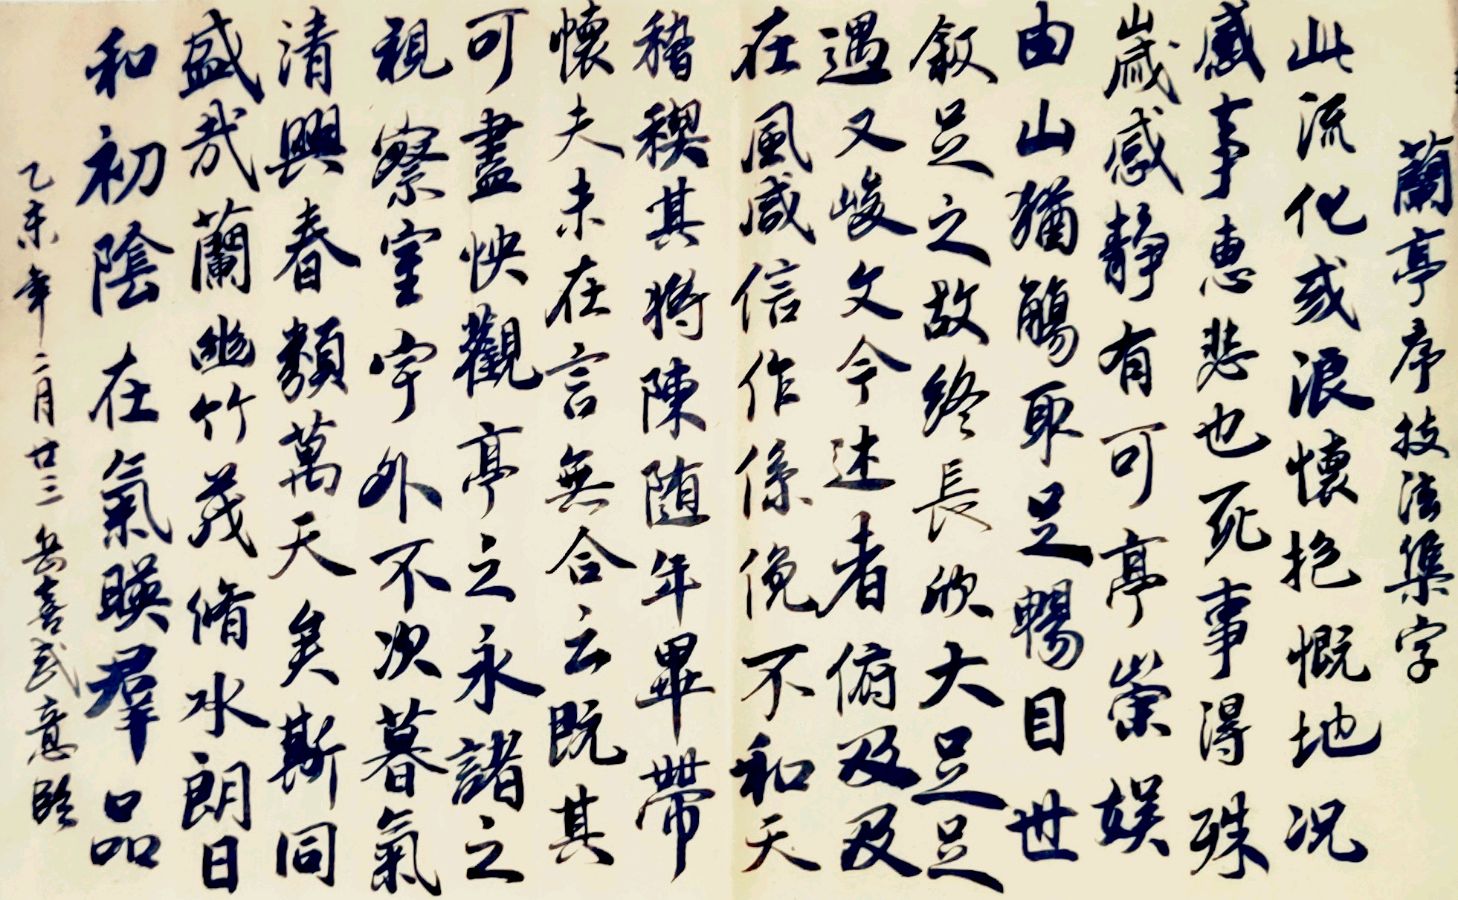 蘭亭序技法集字
此流化或浪懷抱慨地况
感事惠悲也死事得殊
歲感靜有可亭崇娱
由山猶觴取足暢目世
叙足之故終長欣大足足
遇又峻文今述者俯及及
在風咸信作係俛不和天
稽稧其將陳随年畢帶
懷夫未在言無合云既其
可盡怏觀亭之永諸之
視察室宇外不次暮氣
清興春類萬天矣斯同
盛哉蘭幽竹茂脩水朗日
和初陰在氣暎羣品
乙未年二月廿三岳喜武意臨